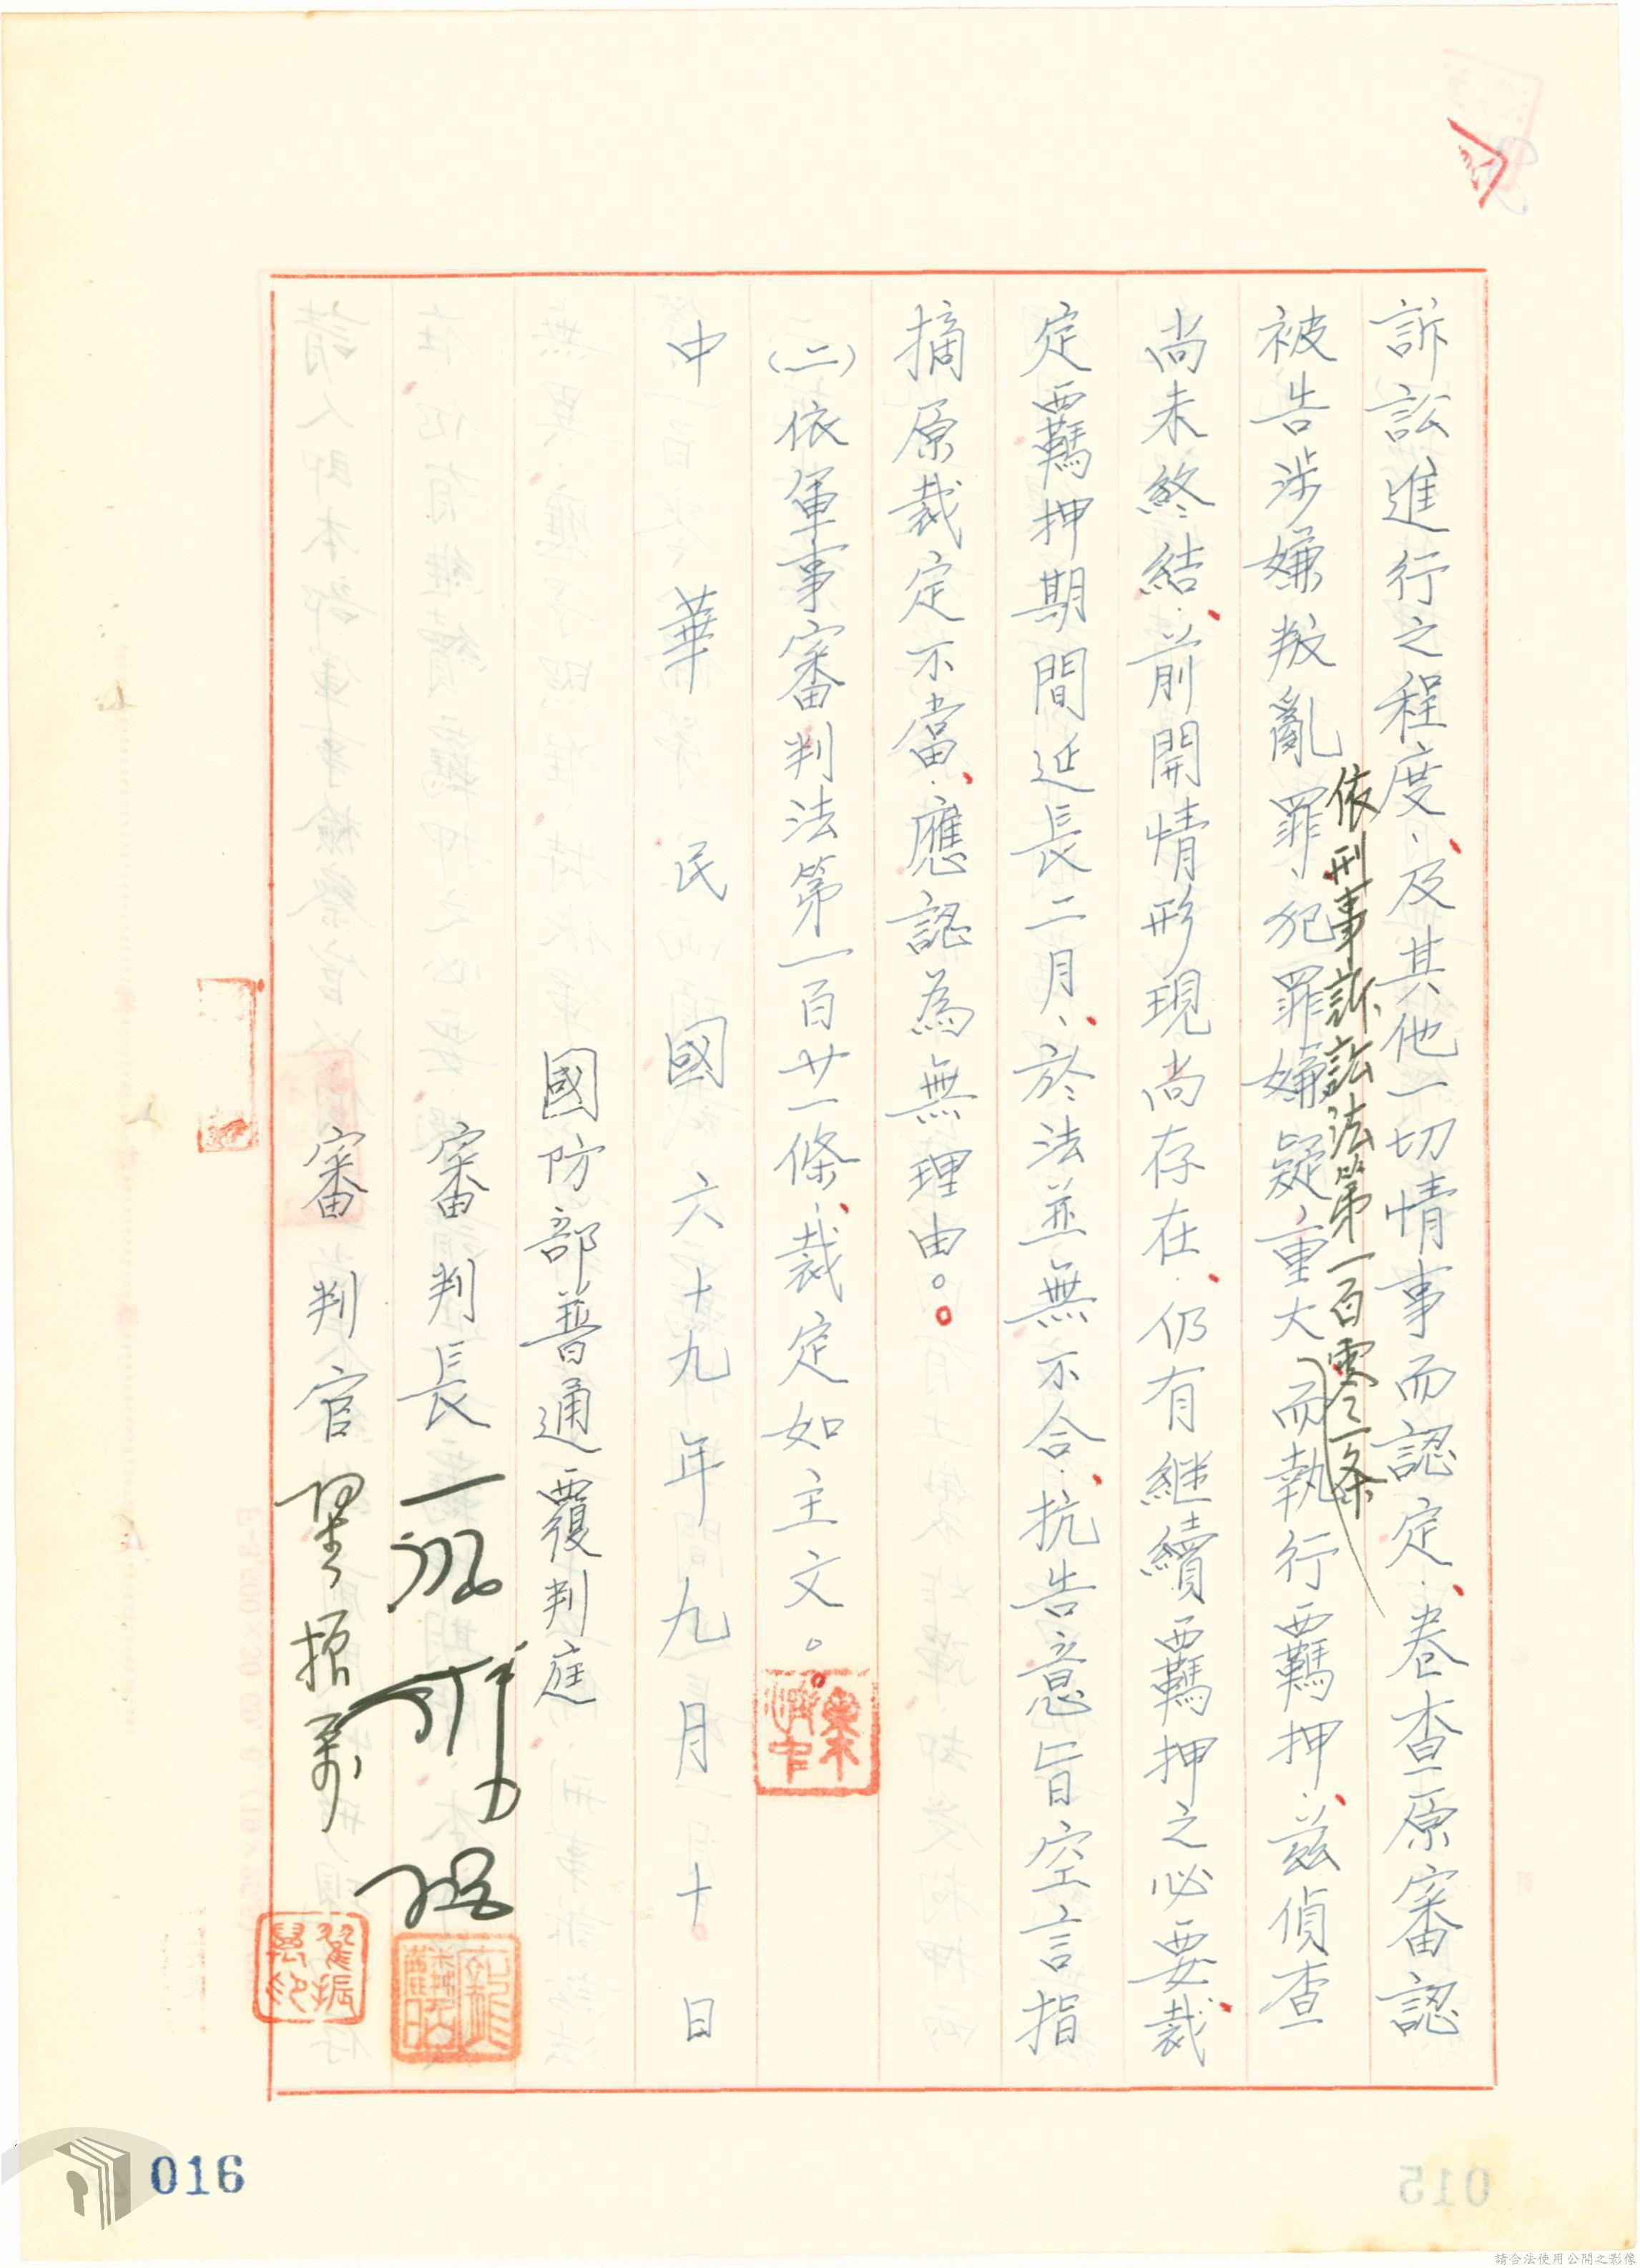 訴訟進行之程度、及其他一切情事而認定、卷查原審認
被告涉嫌叛亂罪、犯罪嫌疑重大而執行羈押、茲偵查
依刑事訴訟法第一百零一条
尚未終結、前開情形現尚存在、仍有继續羈押之必要裁
定羈押期間延長二月、於法並無不合、抗告意旨空言指
摘原裁定不當、應認為無理由。
(二)依軍事審判法第一百廿一條、裁定如主文。
中華民國六十九年九月十日
國防部普通覆判庭
審判長
審判官
翟振萬印
016
015
請合法使用公開之影像